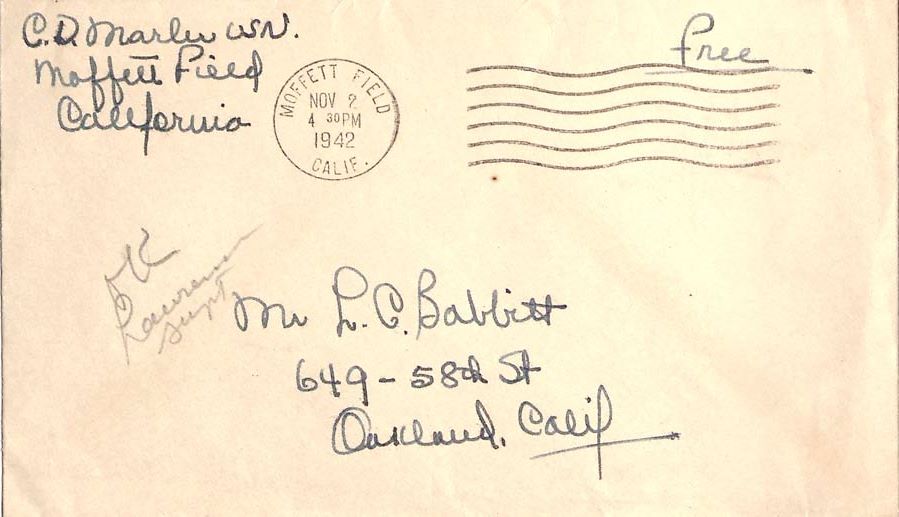 C.D. Marler USN.
Moffett Field
California
MOFFETT FIELD
NOV 2
4 30PM
1942
CALIF.
Free
OK
supt
Mr L.C. Babbitt
649-58th St
Oakland, Calif